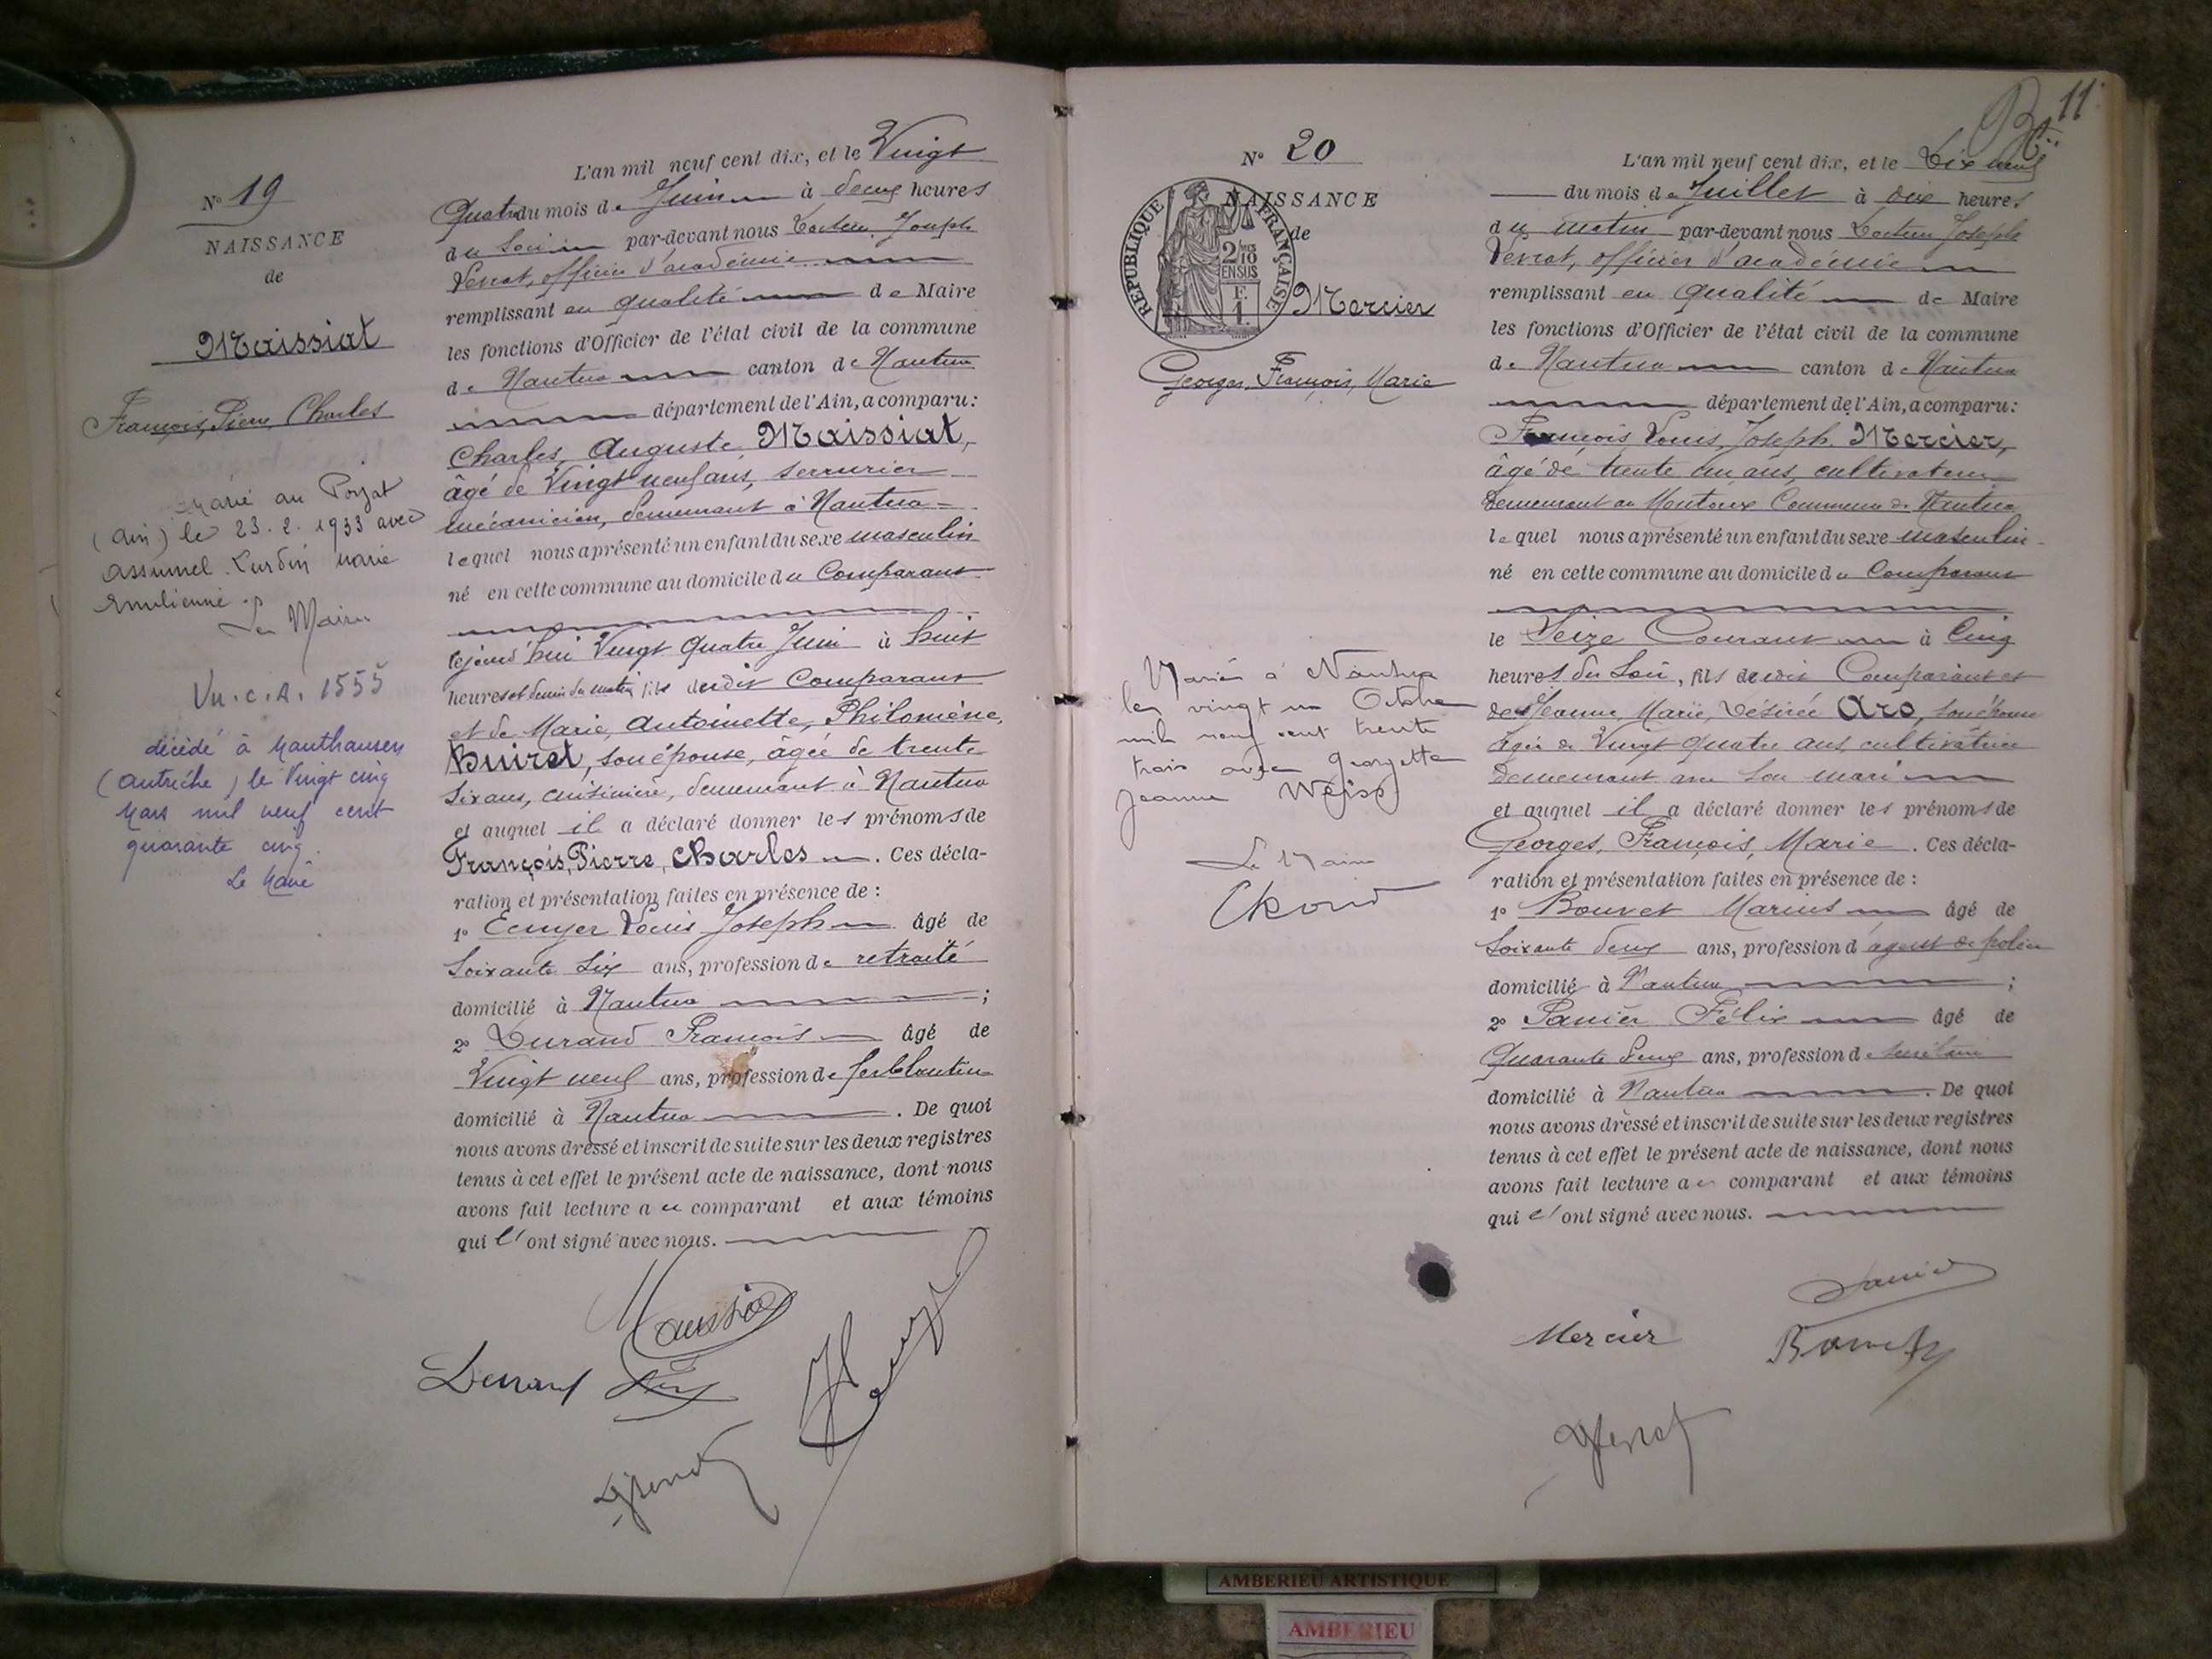 N° 19
NAISSANCE
de
Maissiat
François, Pierre, Charles
marié au Poizat
(Ain) le 23.2.1933 avec
marie
emilienne.
Le Maire
Vu.C.A. 1555
décédé à Mauthausen
(autriche) le Vingt cinq
Mars mil neuf cent
quarante cinq.
Le Maire
L'an mil neuf cent dix, et le Vingt
Quatre du mois de Juin à deux heures
du Soir par-devant nous Docteur Joseph
officier d'académie
remplissant en qualité de Maire
les fonctions d'Officier de l'état civil de la commune
de Nantua canton de Nantua
département de l'Ain, a comparu:
Charles, Auguste Maissiat,
âgé de Vingt neuf ans, serrurier
mécanicien, demeurant à Nantua
lequel nous a présenté un enfant du sexe masculin
né en cette commune au domicile du Comparant
Vingt quatre Juin à huit
heures et demie du matin fils dudit Comparant
et de Marie, Antoinette, Philomène,
Buiret, son épouse, âgée de trente
Six ans, cuisinière, demeurant à Nantua
et auquel il a déclaré donner les prénoms de
François, Pierre, Charles. Ces décla-
ration et présentation faites en présence de :
1° Ecuyer Louis Joseph âgé de
Soixante Six ans, profession de retraité
domicilié à Nantua ;
2° Durand François âgé de
Vingt neuf ans, profession de ferblantier
domicilié à Nantua . De quoi
nous avons dressé et inscrit de suite sur les deux registres
tenus à cet effet le présent acte de naissance, dont nous
avons fait lecture au comparant et aux témoins
qui l'ont signé avec nous.
Maissiat
Durand
B
11
N° 20
NAISSANCE
de
RÉPUBLIQUE FRANÇAISE
2/10
EN SUS
Mercier
Georges, François, Marie
Marié à Nantua
le vingt un Octobre
mil neuf cent trente
trois avec Georgette
Jeanne Weiss
Le Maire
L'an mil neuf cent dix, et le Dix neuf
du mois de Juillet à dix heures
du matin par-devant nous Docteur Joseph
officier d'académie
remplissant en qualité de Maire
les fonctions d'Officier de l'état civil de la commune
de Nantua canton de Nantua
département de l'Ain, a comparu:
François, Louis, Joseph, Mercier,
âgé de trente un ans, cultivateur
demeurant au Commune de Nantua
lequel nous a présenté un enfant du sexe masculin
né en cette commune au domicile du Comparant
le Seize Courant à Cinq
heures du Soir, fils dudit Comparant et
de Jeanne, Marie, Désirée Aro, son épouse
âgée de Vingt quatre ans, cultivatrice
demeurant avec son mari
et auquel il a déclaré donner les prénoms de
Georges, François, Marie. Ces décla-
ration et présentation faites en présence de :
1° Bouvet Marius âgé de
Soixante deux ans, profession d'agent de police
domicilié à Nantua ;
2° Panier Félix âgé de
Quarante deux ans, profession de
domicilié à Nantua . De quoi
nous avons dressé et inscrit de suite sur les deux registres
tenus à cet effet le présent acte de naissance, dont nous
avons fait lecture au comparant et aux témoins
qui l'ont signé avec nous.
Mercier
AMBERIEU ARTISTIQUE
AMBERIEU